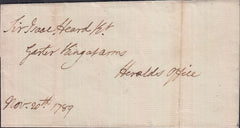 Sir Isaac Heard Kt
Garter King of arms
Heralds Office
Nov. 20th 1789